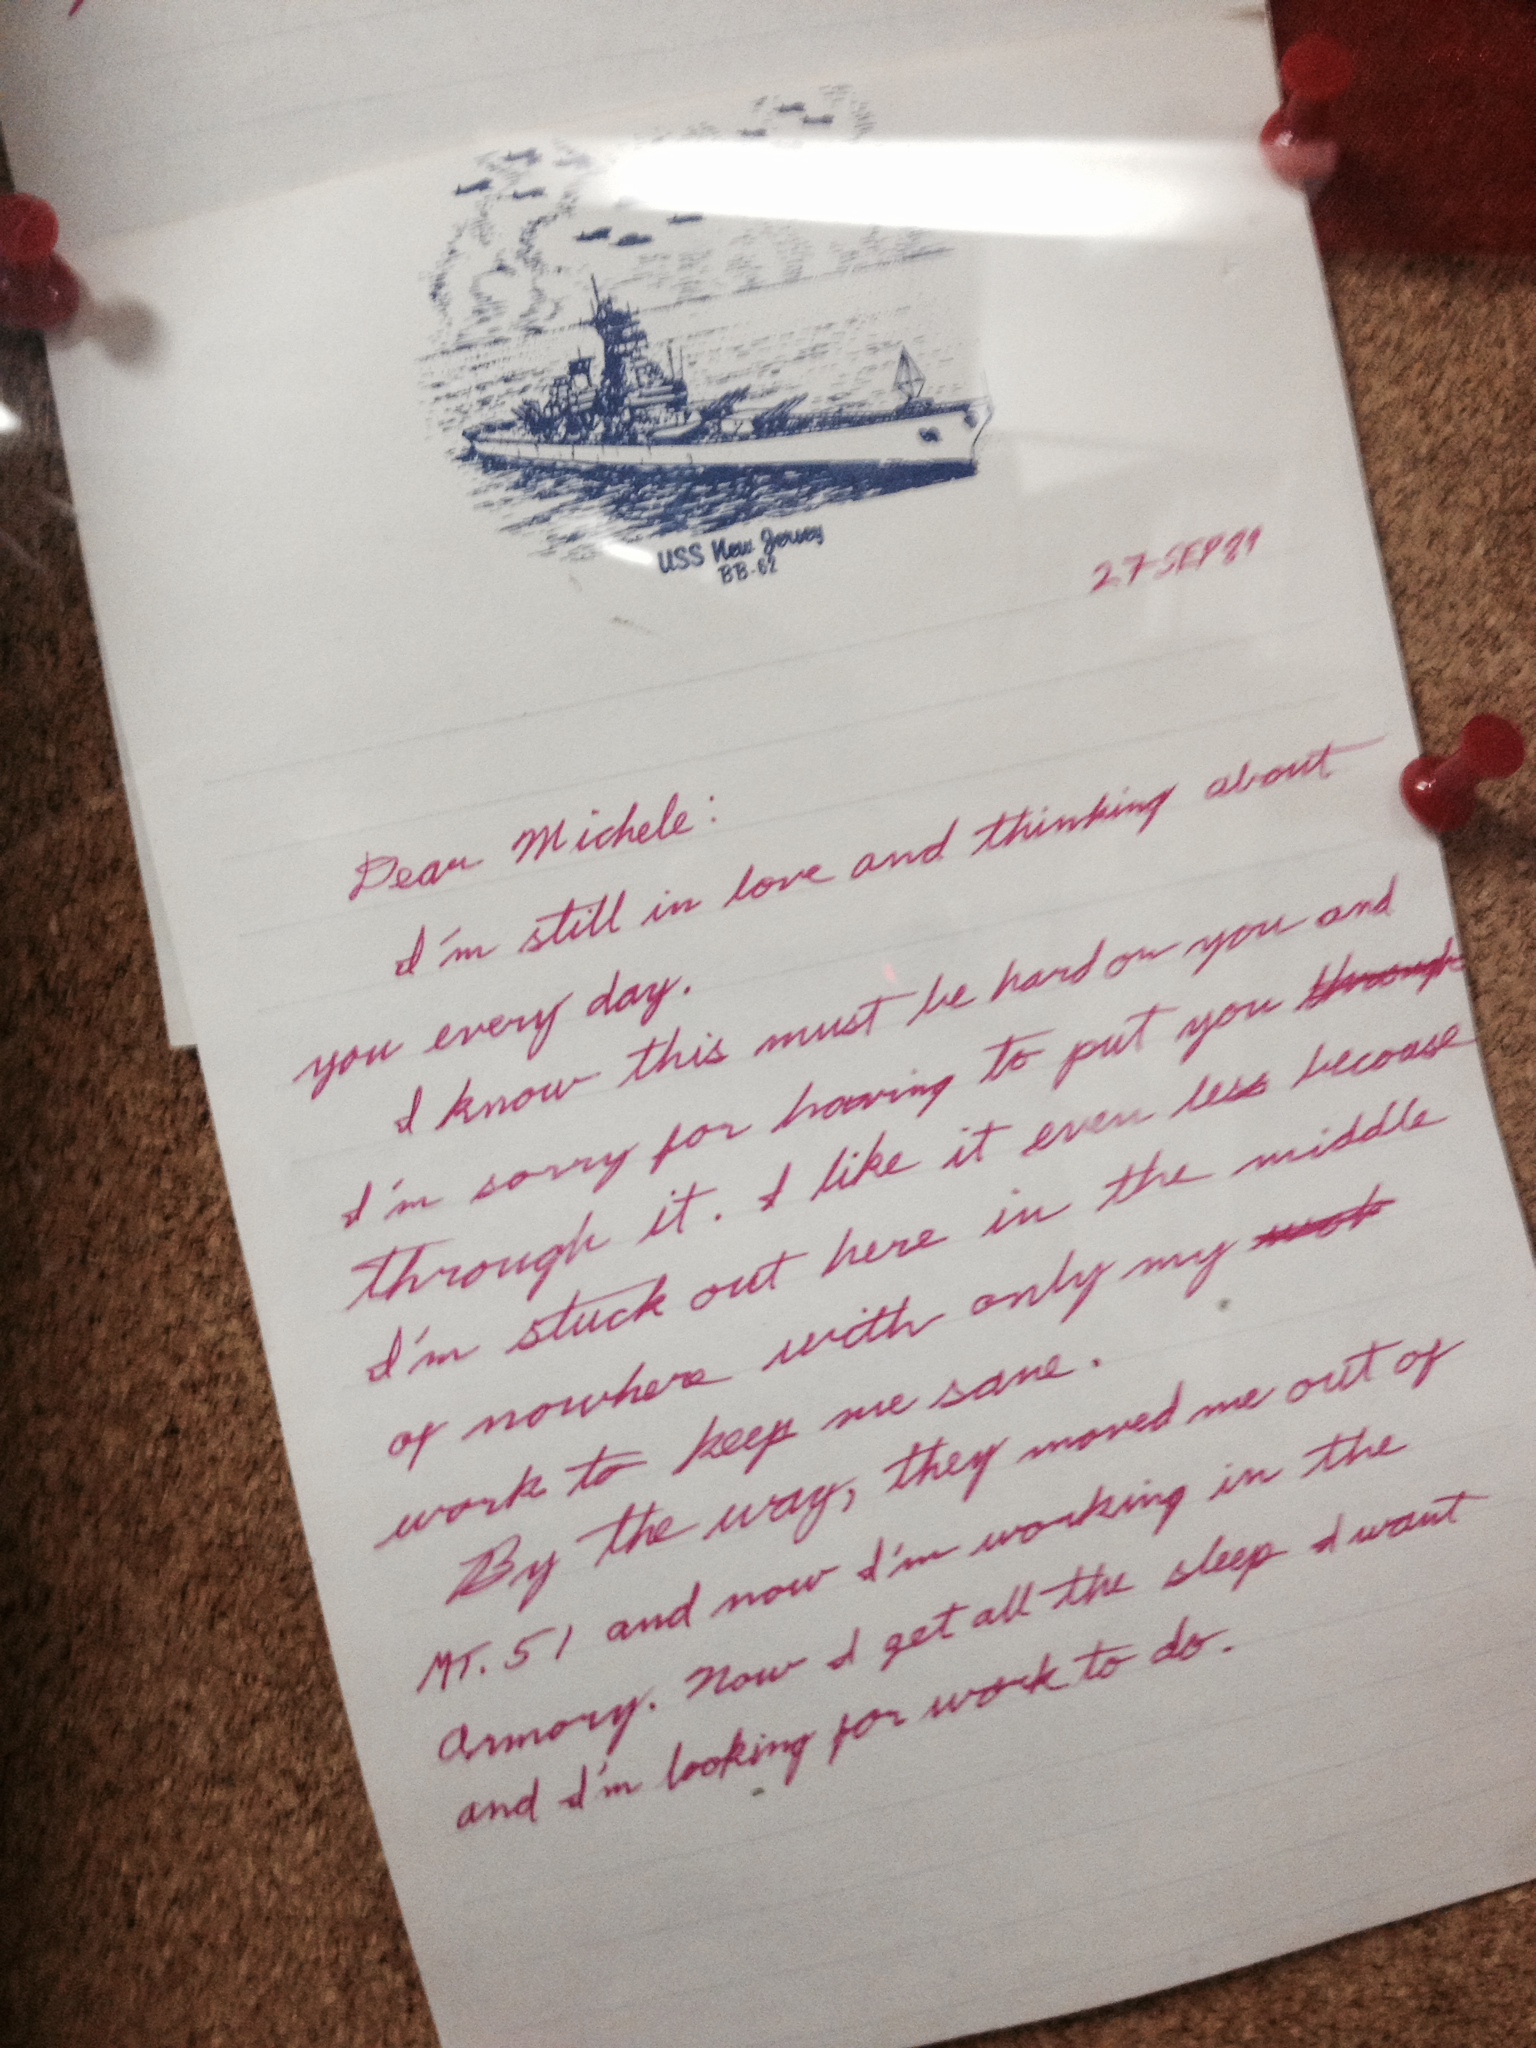 USS New Jersey
BB-62
27 SEP 89
Dear Michele:
I'm still in love and thinking about
you every day.
I know this must be hard on you and
I'm sorry for having to put you through
through it. I like it even less becoase
I'm stuck out here in the middle
of nowhere with only my
work to keep me sane.
By the way, they moved me out of
MT. 51 and now I'm working in the
armory. Now I get all the sleep I want
and I'm looking for work to do.